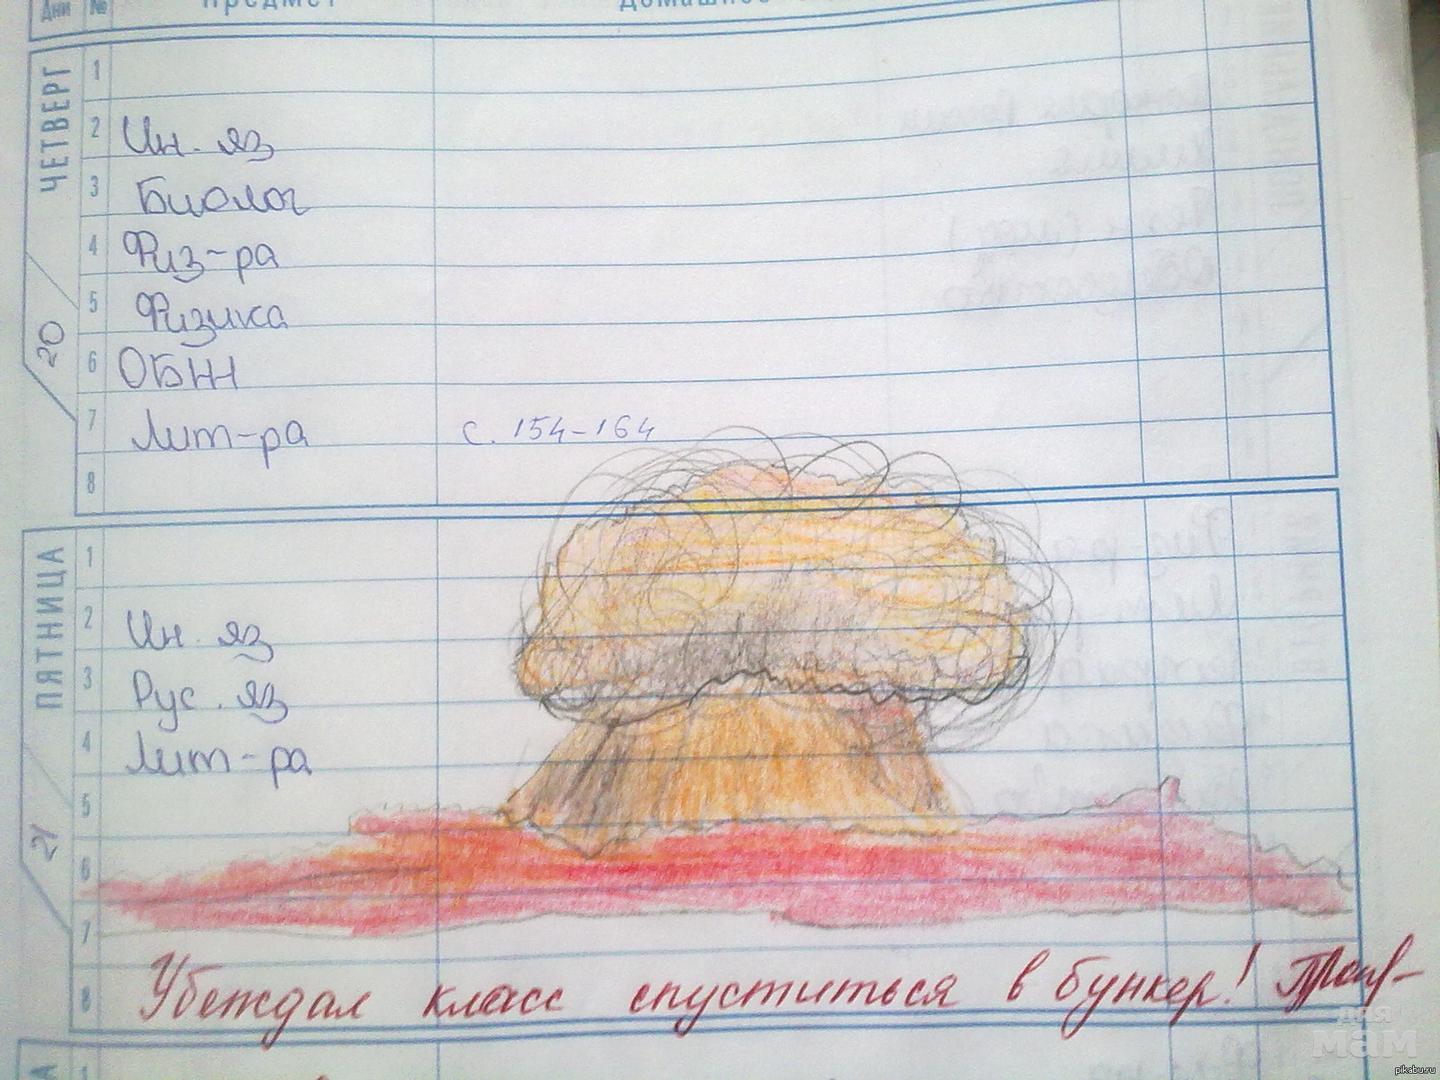 Дни № Предмет
ЧЕТВЕРГ
20
1
2 Ин. яз
3 Биолог
4 Физ-ра
5 Физика
6 ОБЖ
7 Лит-ра с. 154-164
8
ПЯТНИЦА
21
1
2 Ин. яз
3 Рус. яз
4 Лит-ра
5
6
7
8 Убеждал класс спуститься в бункер!
1
для
мам
pikabu.ru